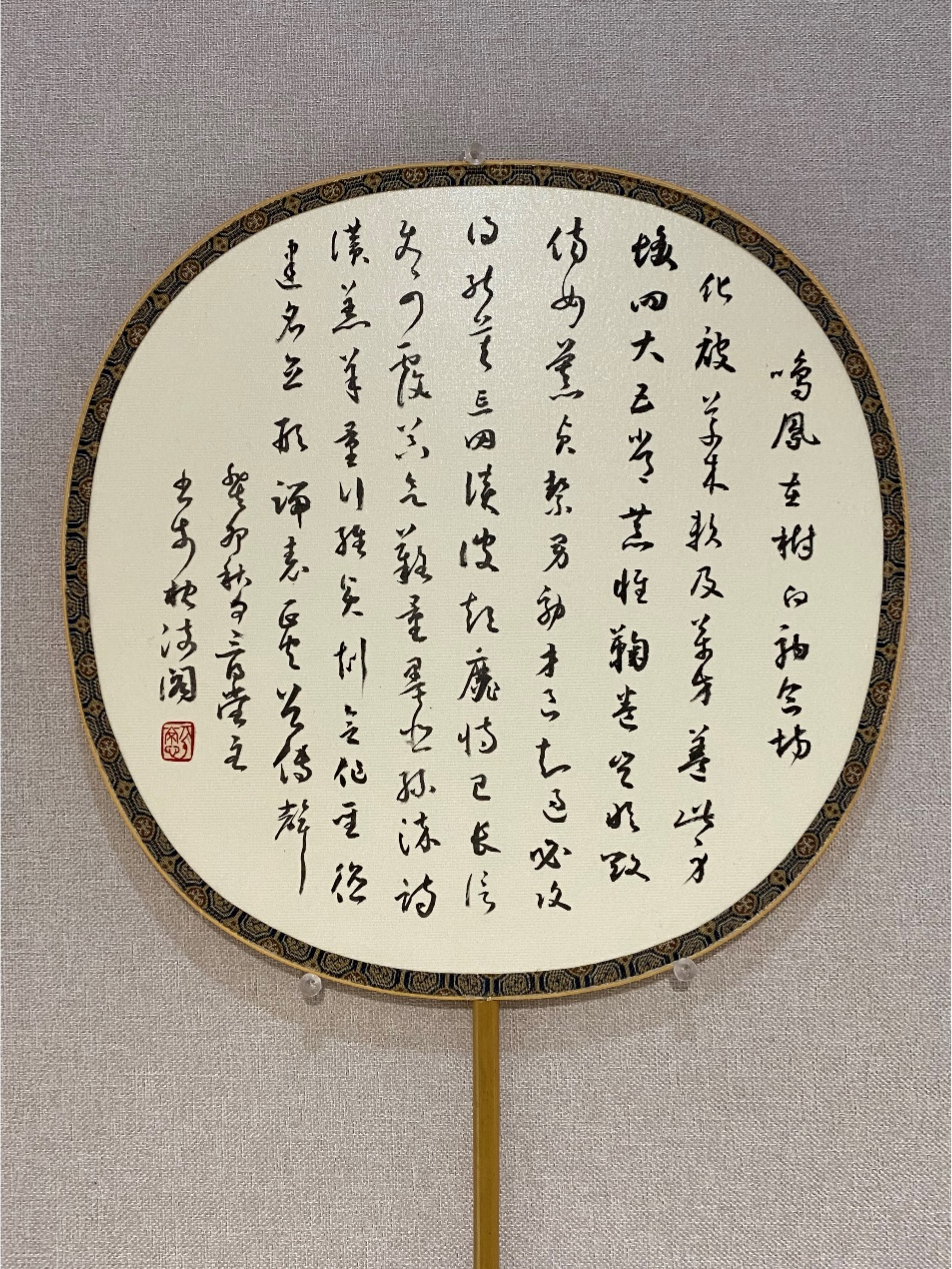 鳴鳳在樹白駒食場
化被草木賴及萬方蓋此身
髮四大五常恭惟鞠養豈敢毀
傷女慕貞絜男效才良知過必改
得能莫忘罔談彼短靡恃己長信
使可覆器欲難量墨悲絲染詩
讚羔羊景行維賢剋念作聖德
建名立形端表正空谷傳聲
癸卯秋月三百堂主
书於閣